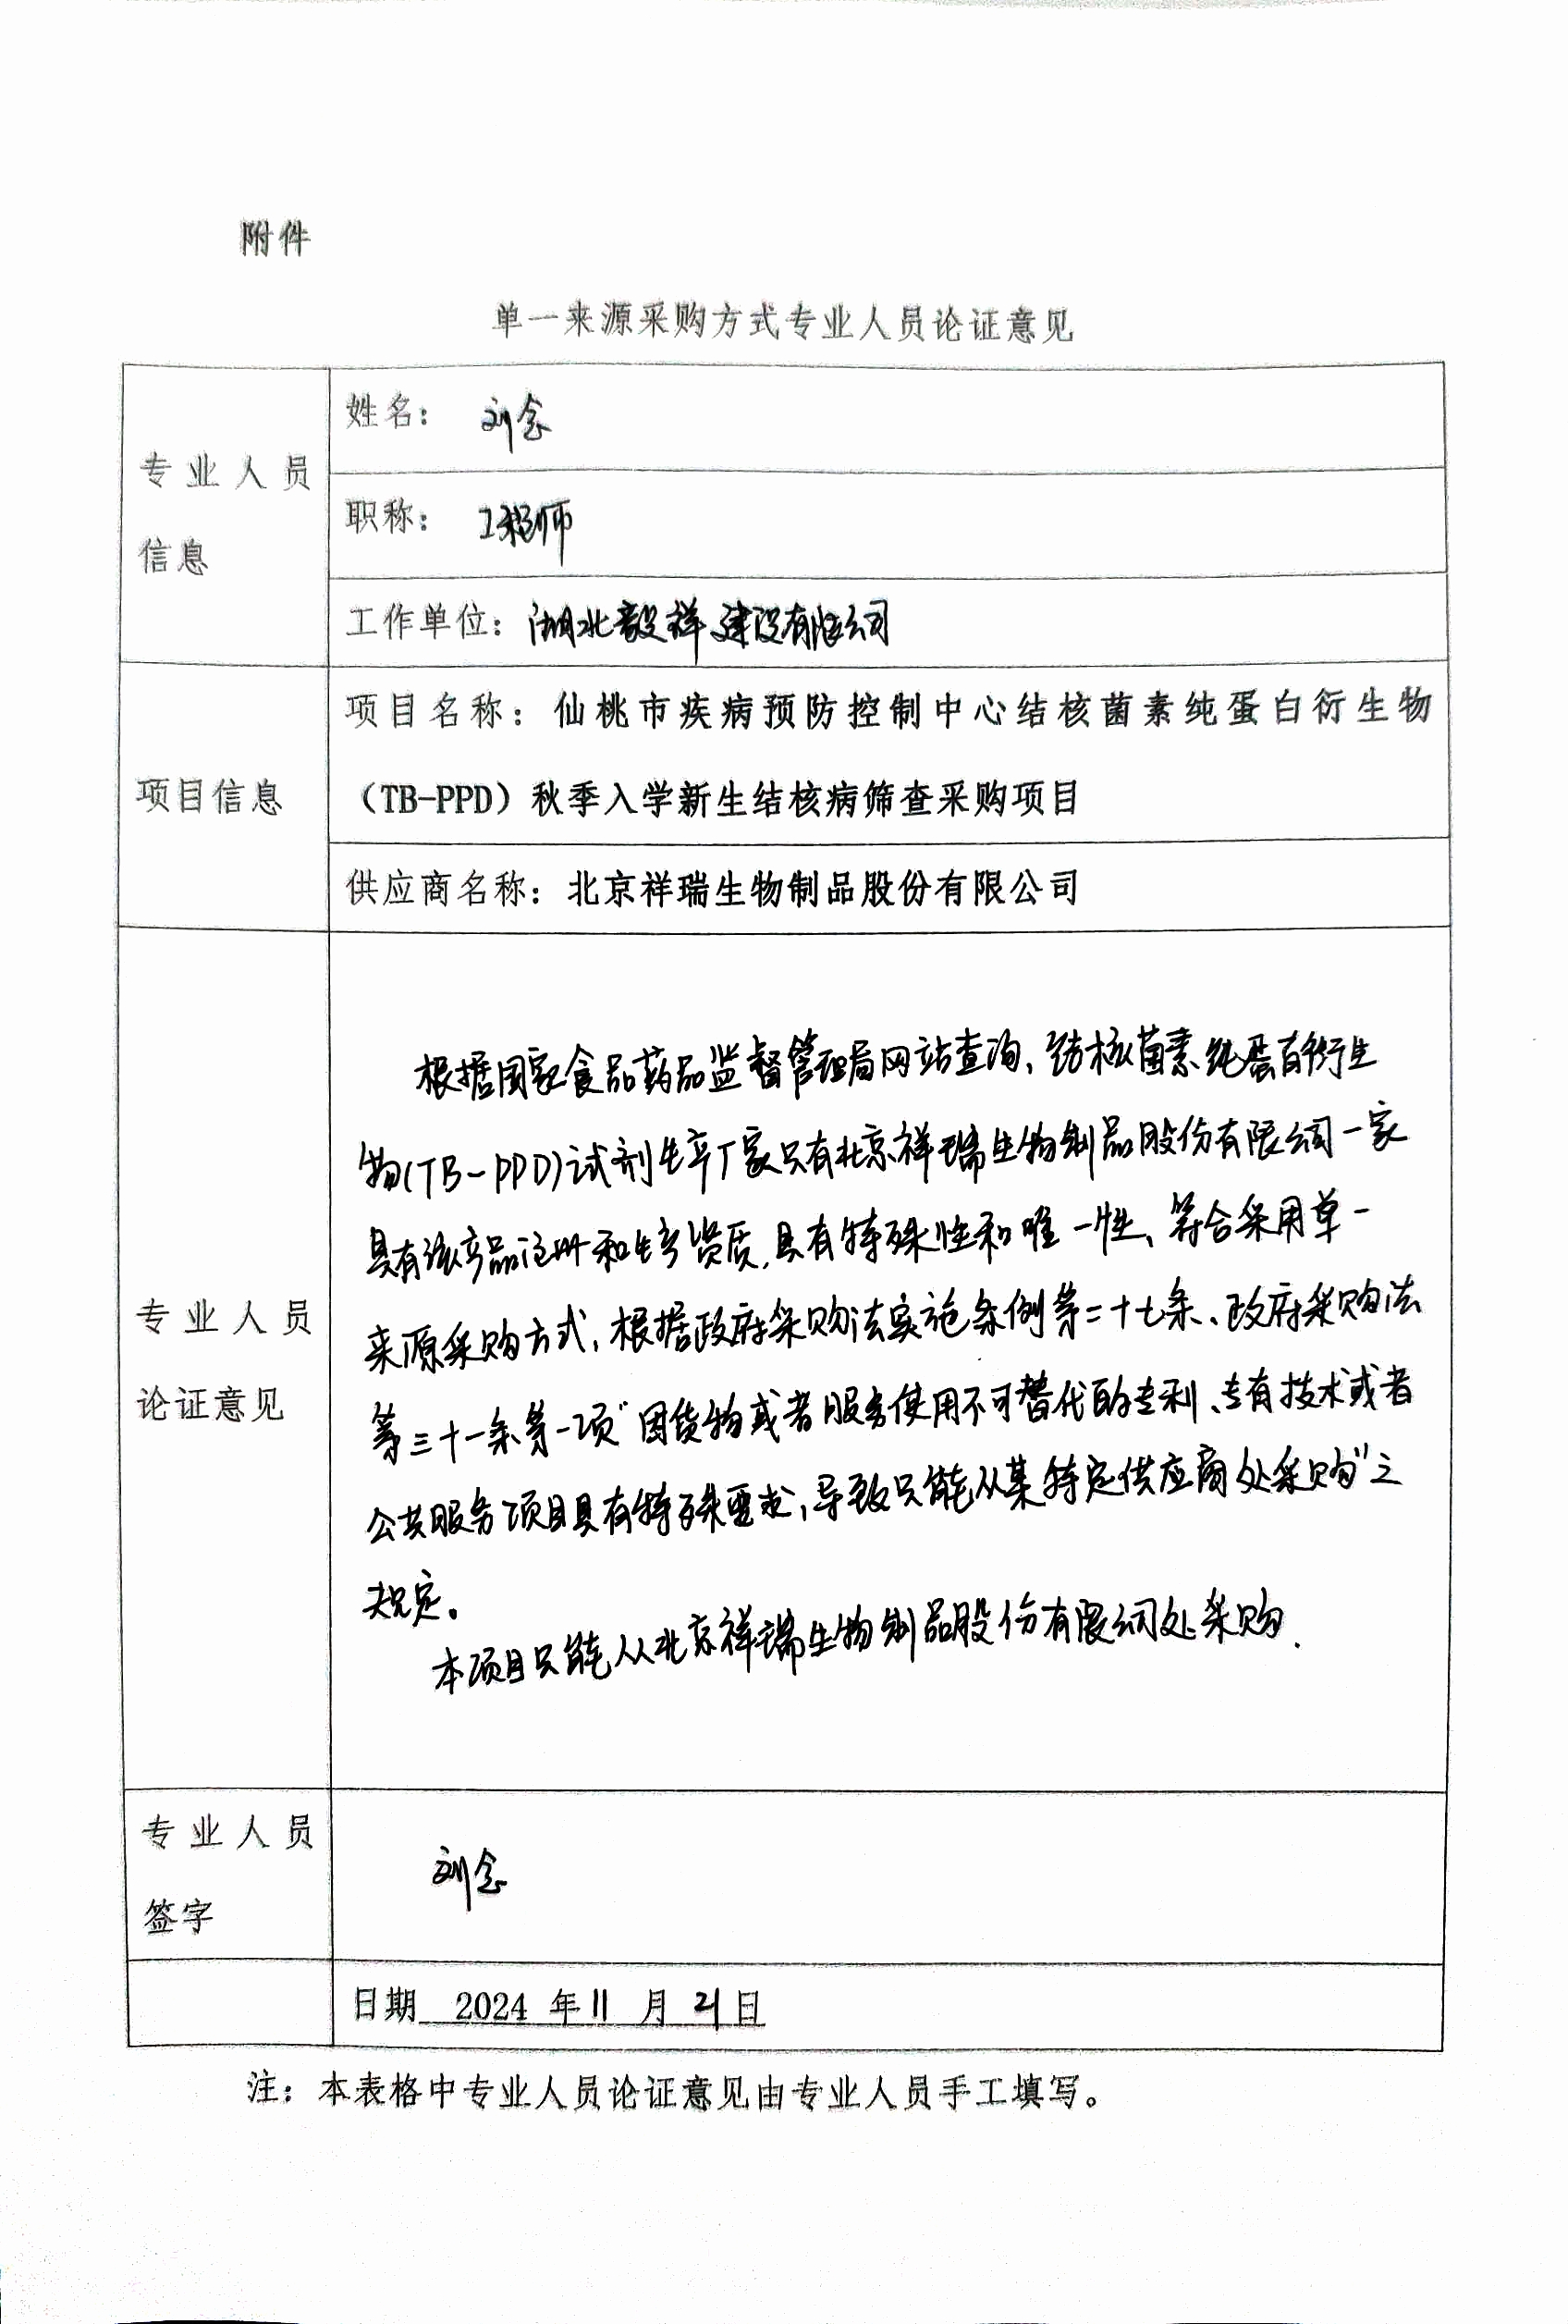 附件
单一来源采购方式专业人员论证意见
专业人员
信息
姓名： 刘念
职称： 工程师
工作单位：湖北毅祥建设有限公司
项目信息
项目名称：仙桃市疾病预防控制中心结核菌素纯蛋白衍生物
（TB-PPD）秋季入学新生结核病筛查采购项目
供应商名称：北京祥瑞生物制品股份有限公司
专业人员
论证意见
根据国家食品药品监督管理局网站查询，结核菌素纯蛋白衍生
物(TB-PPD)试剂生产厂家只有北京祥瑞生物制品股份有限公司一家
具有该产品注册和生产资质，具有特殊性和唯一性、符合采用单一
来源采购方式，根据政府采购法实施条例第二十七条、政府采购法
第三十一条第一项“因货物或者服务使用不可替代的专利、专有技术或者
公共服务项目具有特殊要求，导致只能从某特定供应商处采购”之
规定。
本项目只能从北京祥瑞生物制品股份有限公司处采购.
专业人员
签字
刘念
日期 2024 年 11 月 21 日
注：本表格中专业人员论证意见由专业人员手工填写。